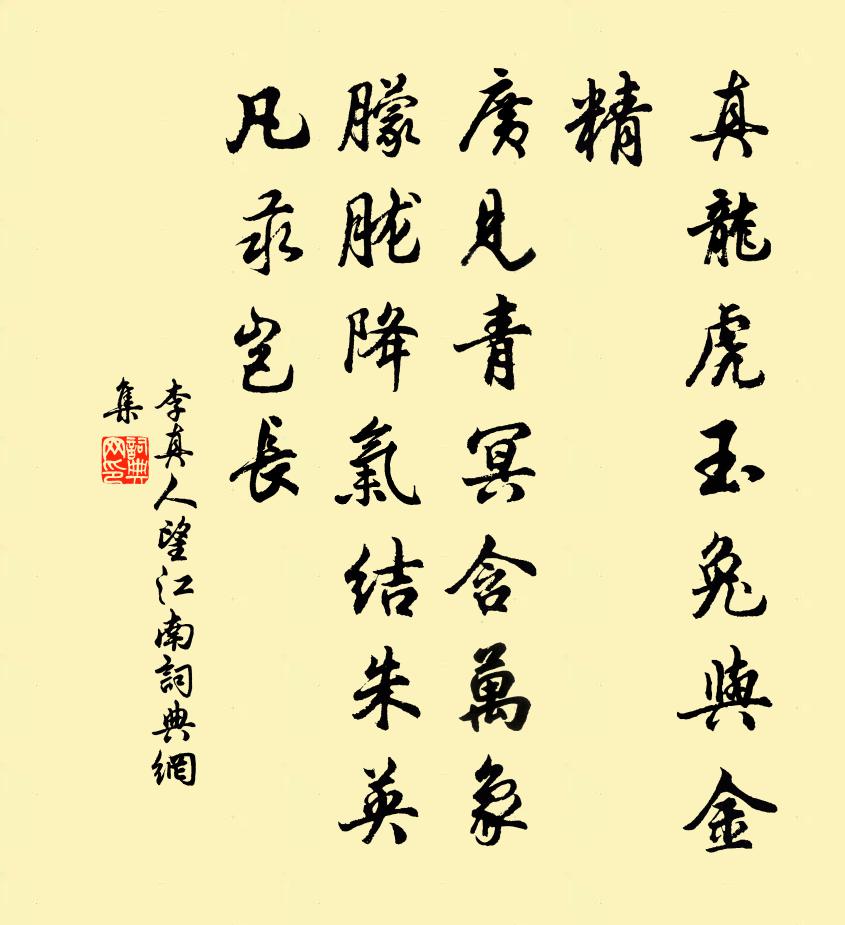 真龍虎玉兔與金
精
廣見青冥含萬象
朦朧降氣結朱英
凡汞豈長
李真人望江南詞典網
集
詞典
网印